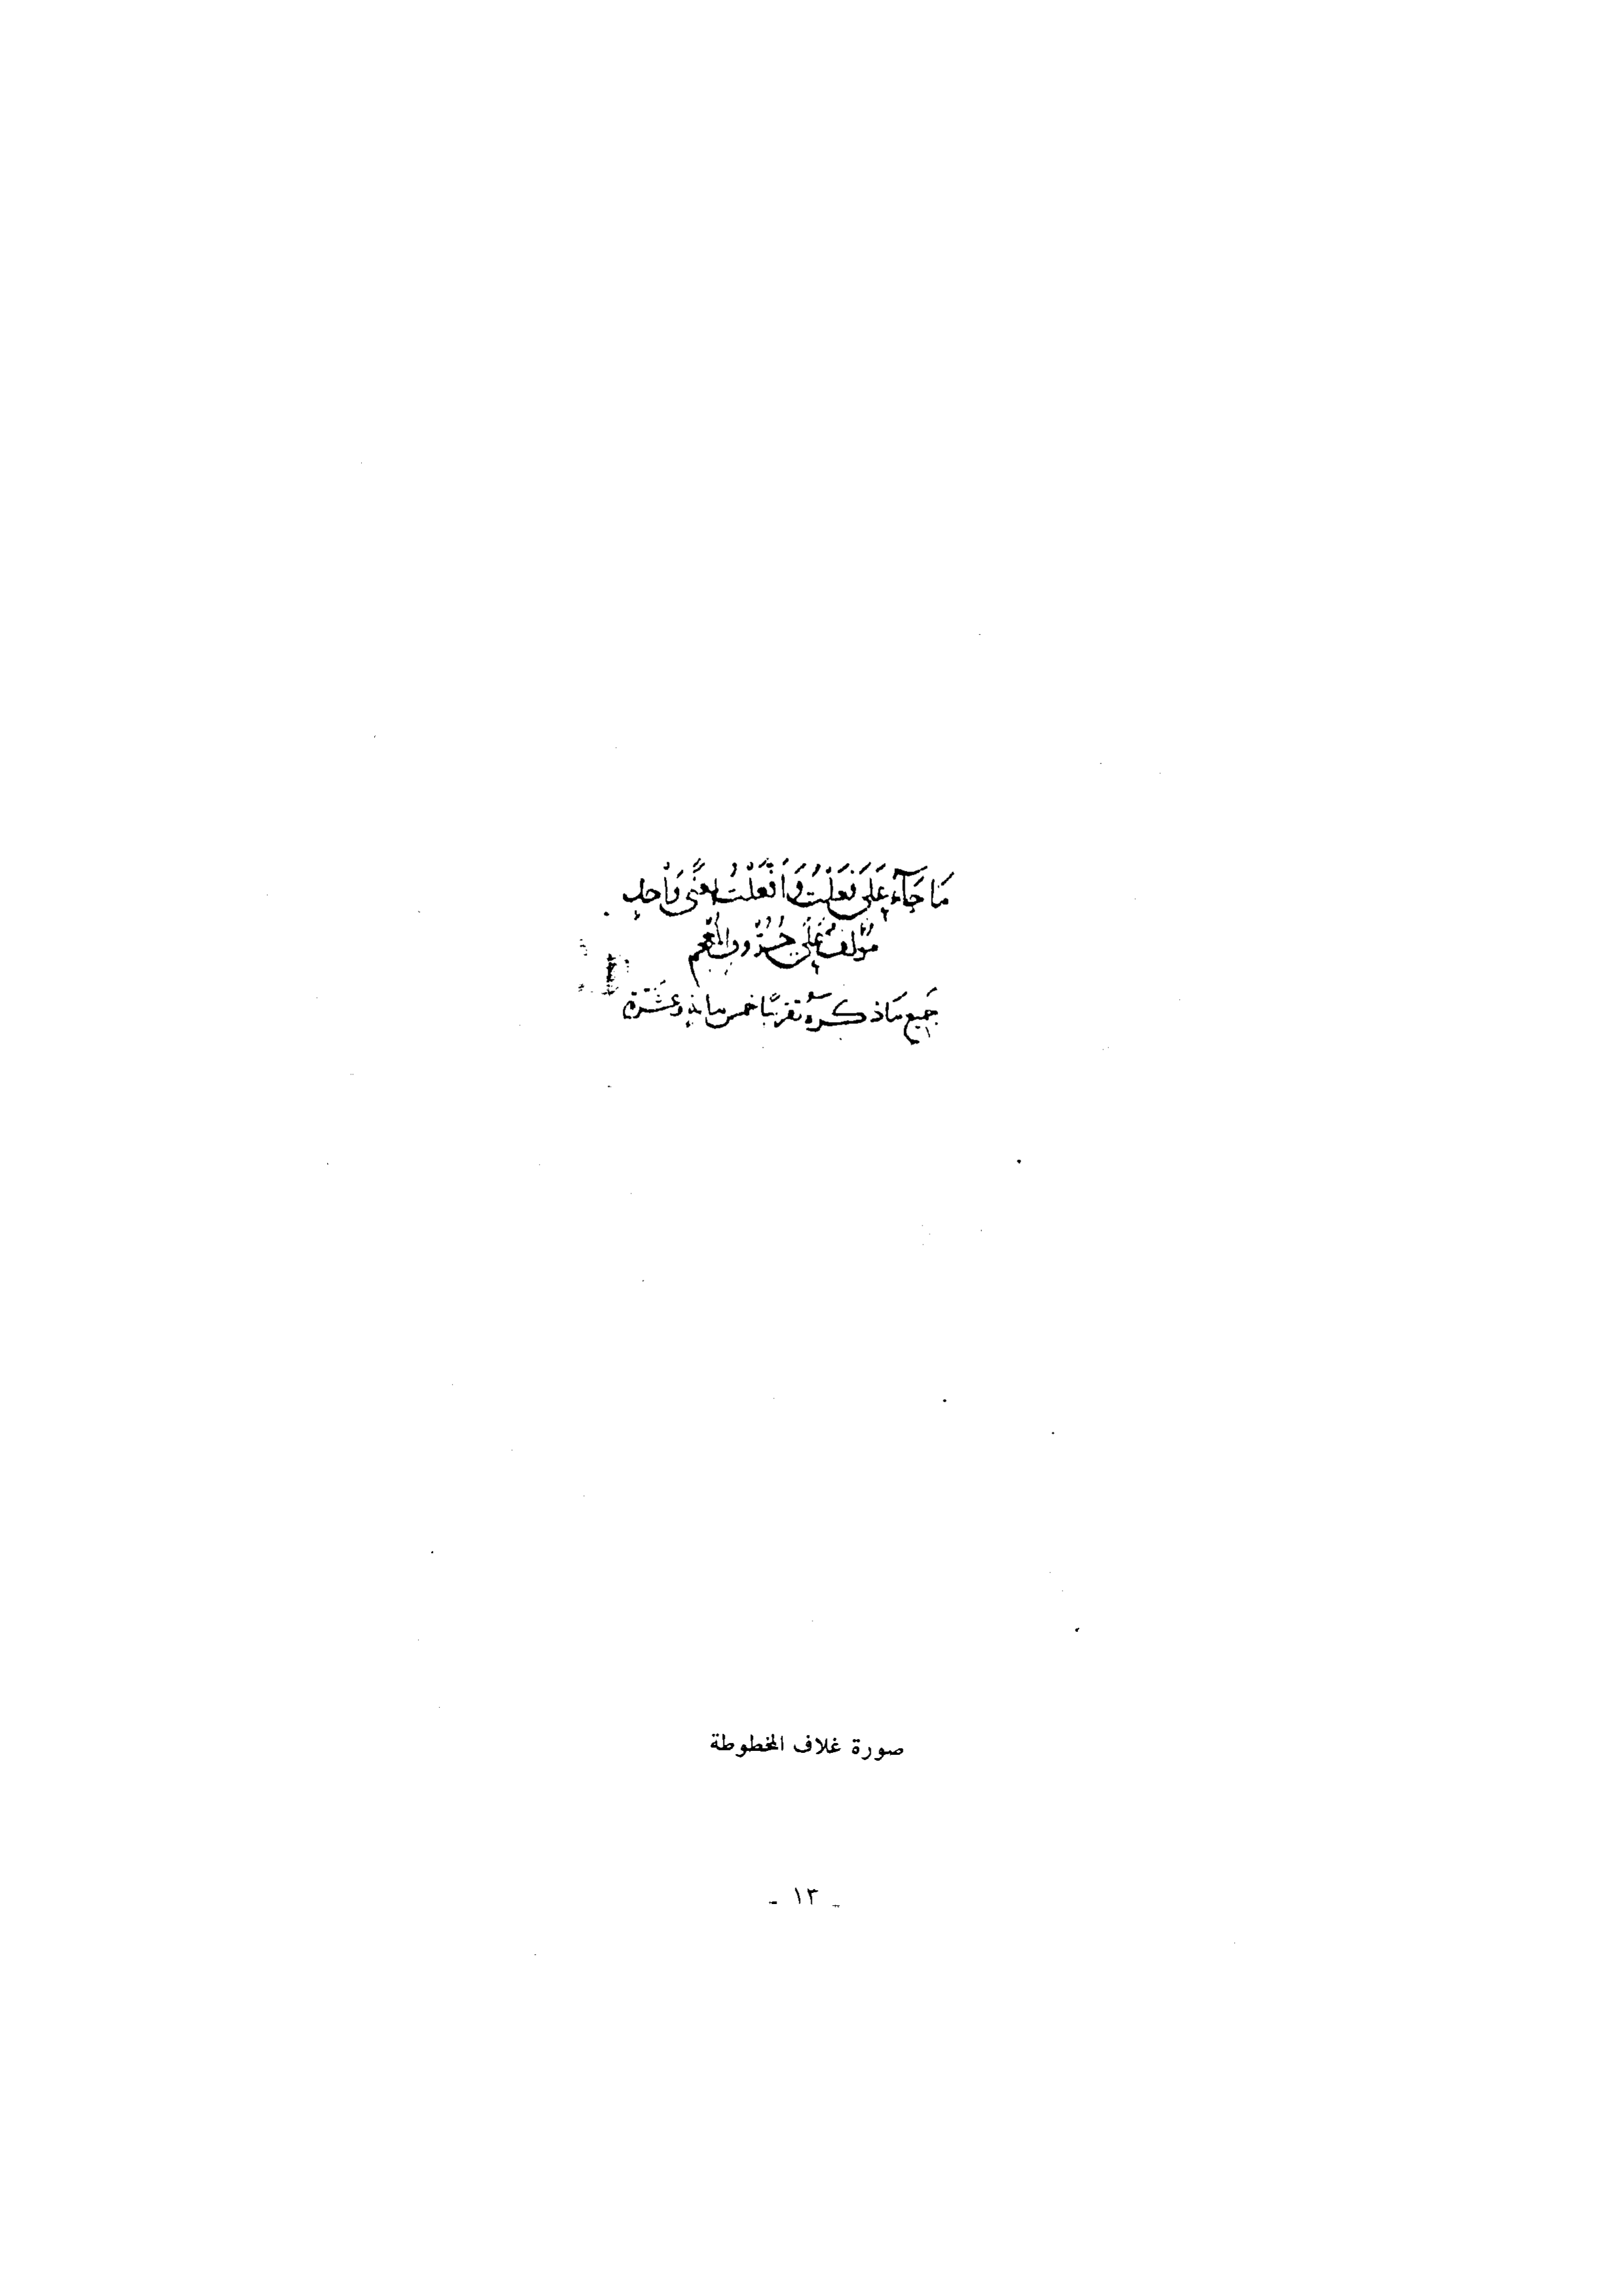 مَا جَآءَ عَلَى فَعَلْتُ وَأَفْعَلْتُ بِمَعْنًى وَاحِدٍ
مُؤَلَّفٌ عَلَى حُرُوفِ المُعْجَمِ
جَمِيع مَا ذكره تقريبًا خمس مائة وعشرة
صورة غلاف المخطوطة
ـ ١٣ ـ